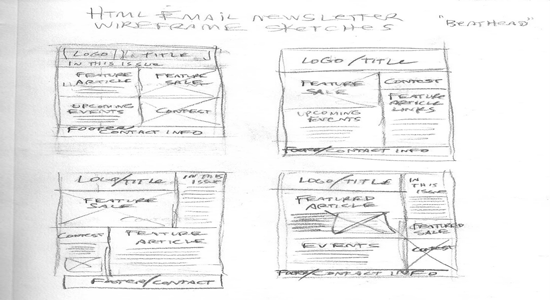 HTML EMAIL NEWSLETTER
WIREFRAME SKETCHES
"BEATHEAD"
LOGO/TITLE
IN THIS ISSUE
FEATURE
ARTICLE
FEATURE
SALE
UPCOMING
EVENTS
CONTEST
FOOTER/CONTACT INFO
LOGO/TITLE
FEATURE
SALE
CONTEST
FEATURE
ARTICLE
LINKS
UPCOMING
EVENTS
FOOTER/CONTACT INFO
LOGO/TITLE
IN THIS
ISSUE
FEATURE
SALE
CONTEST
FEATURE
ARTICLE
FOOTER/CONTACT
LOGO/TITLE
IN
THIS
ISSUE
FEATURED
ARTICLE
FEATURED
SALE
EVENTS
CONTEST
FOOTER/CONTACT INFO